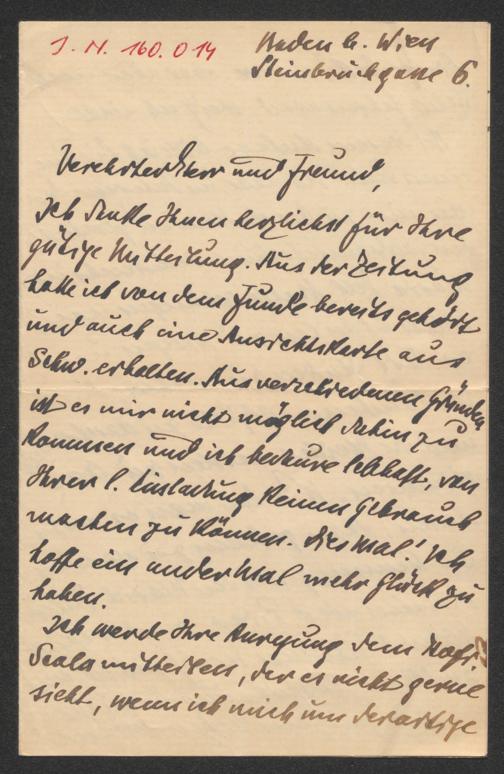 J. N. 160.014
Baden b. Wien
Steinbruchgasse 6.
Verehrter Herr und Freund,
Ich danke Ihnen herzlichst für Ihre
gütige Mitteilung. Aus der Zeitung
hatte ich von dem Funde bereits gehört
und auch eine Ansichtskarte aus
Schw. erhalten. Aus verschiedenen Gründen
ist es mir nicht möglich dahin zu
kommen und ich bedaure lebhaft, von
Ihrer l. Einladung keinen Gebrauch
machen zu können. Dies Mal! Ich
hoffe ein ander Mal mehr Glück zu
haben.
Ich werde Ihre Anregung dem
Scala mitteilen, der es nicht gerne
sieht, wenn ich mich um derartige